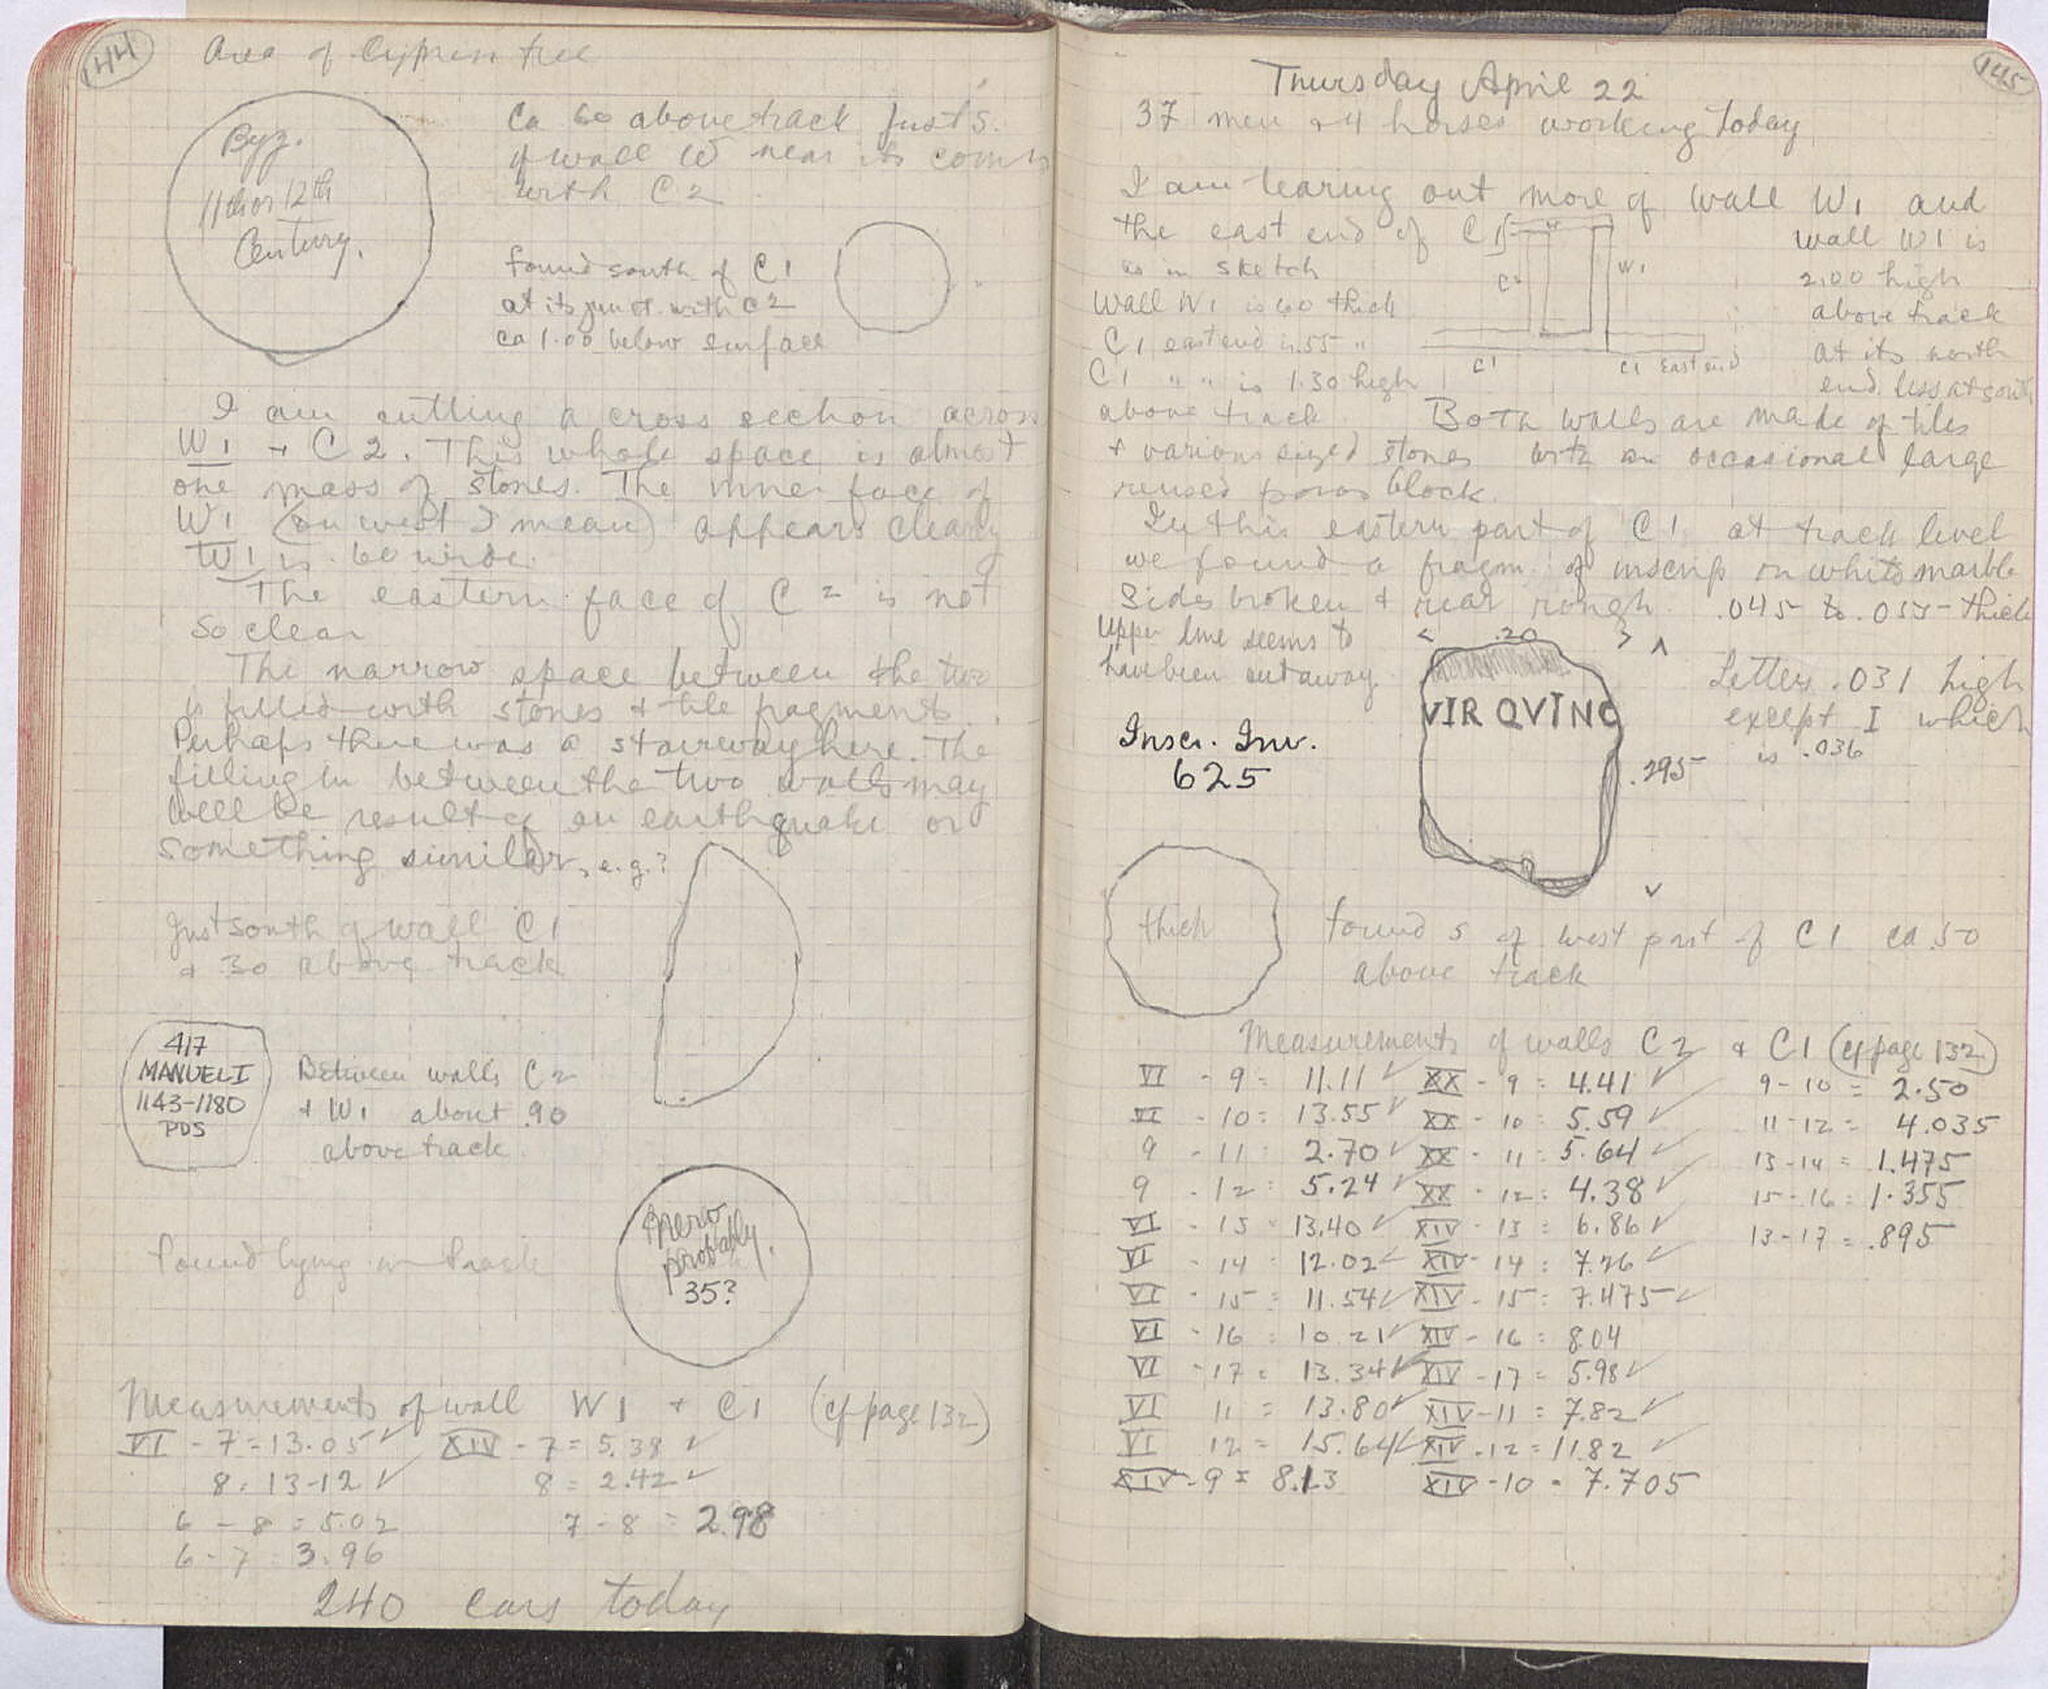 144
Area of Cypress tree
Byz.
11th or 12th
Century.
Ca 60 above track just S.
of wall W near its corner
with C2
found south of C1
at its junct. with C2
ca 1.00 below surface
I am cutting a cross section across
W1 + C2. This whole space is almost
one mass of stones. The inner face of
W1 (on west I mean) appears clearly
W1 is .60 wide.
The eastern face of C2 is not
so clear
The narrow space between the two
is filled with stones + tile fragments.
Perhaps there was a stairway here. The
filling in between the two walls may
well be result of an earthquake or
something similar, e.g.?
Just south of wall C1
+ .30 above track
417
MANUEL I
1143-1180
PDS
Between walls C2
+ W1 about .90
above track
found lying in track
Nero
probably.
35?
Measurements of wall W1 + C1 (cf page 132)
VI - 7 = 13.05 ✓ XIV - 7 = 5.38 ✓
8 = 13-12 ✓ 8 = 2.42 ✓
6 - 8 = 5.02 7 - 8 = 2.98
6 - 7 = 3.96
240 cars today
145
Thursday April 22
37 men + 4 horses working today
I am tearing out more of wall W1 and
the east end of C1
as in sketch
Wall W1 is 60 thick
C1 east end is .55 "
C1 " " is 1.30 high
above track
C2
W1
C1
C1 East end
wall W1 is
2.00 high
above track
at its north
end. less at south
Both walls are made of tiles
+ various sized stones with an occasional large
reused poros block.
In this eastern part of C1 at track level
we found a fragm. of inscrip on white marble
Sides broken + rear rough. .045 to .055 thick
Upper line seems to
have been cut away.
.20
VIR QVINC
.295
Letters .031 high
except I which
is .036
Inscr. Inv.
625
thick
found S of west part of C1 ca .50
above track
Measurements of walls C2 + C1 (cf page 132)
VI - 9 = 11.11 ✓ XX - 9 = 4.41 ✓ 9-10 = 2.50
VI - 10 = 13.55 ✓ XX - 10 = 5.59 ✓ 11-12 = 4.035
9 - 11 = 2.70 ✓ XX - 11 = 5.64 ✓ 13-14 = 1.475
9 - 12 = 5.24 ✓ XX - 12 = 4.38 ✓ 15-16 = 1.355
VI - 13 = 13.40 ✓ XIV - 13 = 6.86 ✓ 13-17 = .895
VI - 14 = 12.02 ✓ XIV - 14 = 7.26 ✓
VI - 15 = 11.54 ✓ XIV - 15 = 7.475 ✓
VI - 16 = 10.21 ✓ XIV - 16 = 8.04
VI - 17 = 13.34 ✓ XIV - 17 = 5.98 ✓
VI 11 = 13.80 ✓ XIV - 11 = 7.82 ✓
VI 12 = 15.64 ✓ XIV - 12 = 11.82 ✓
XIV - 9 = 8.13 XIV - 10 = 7.705